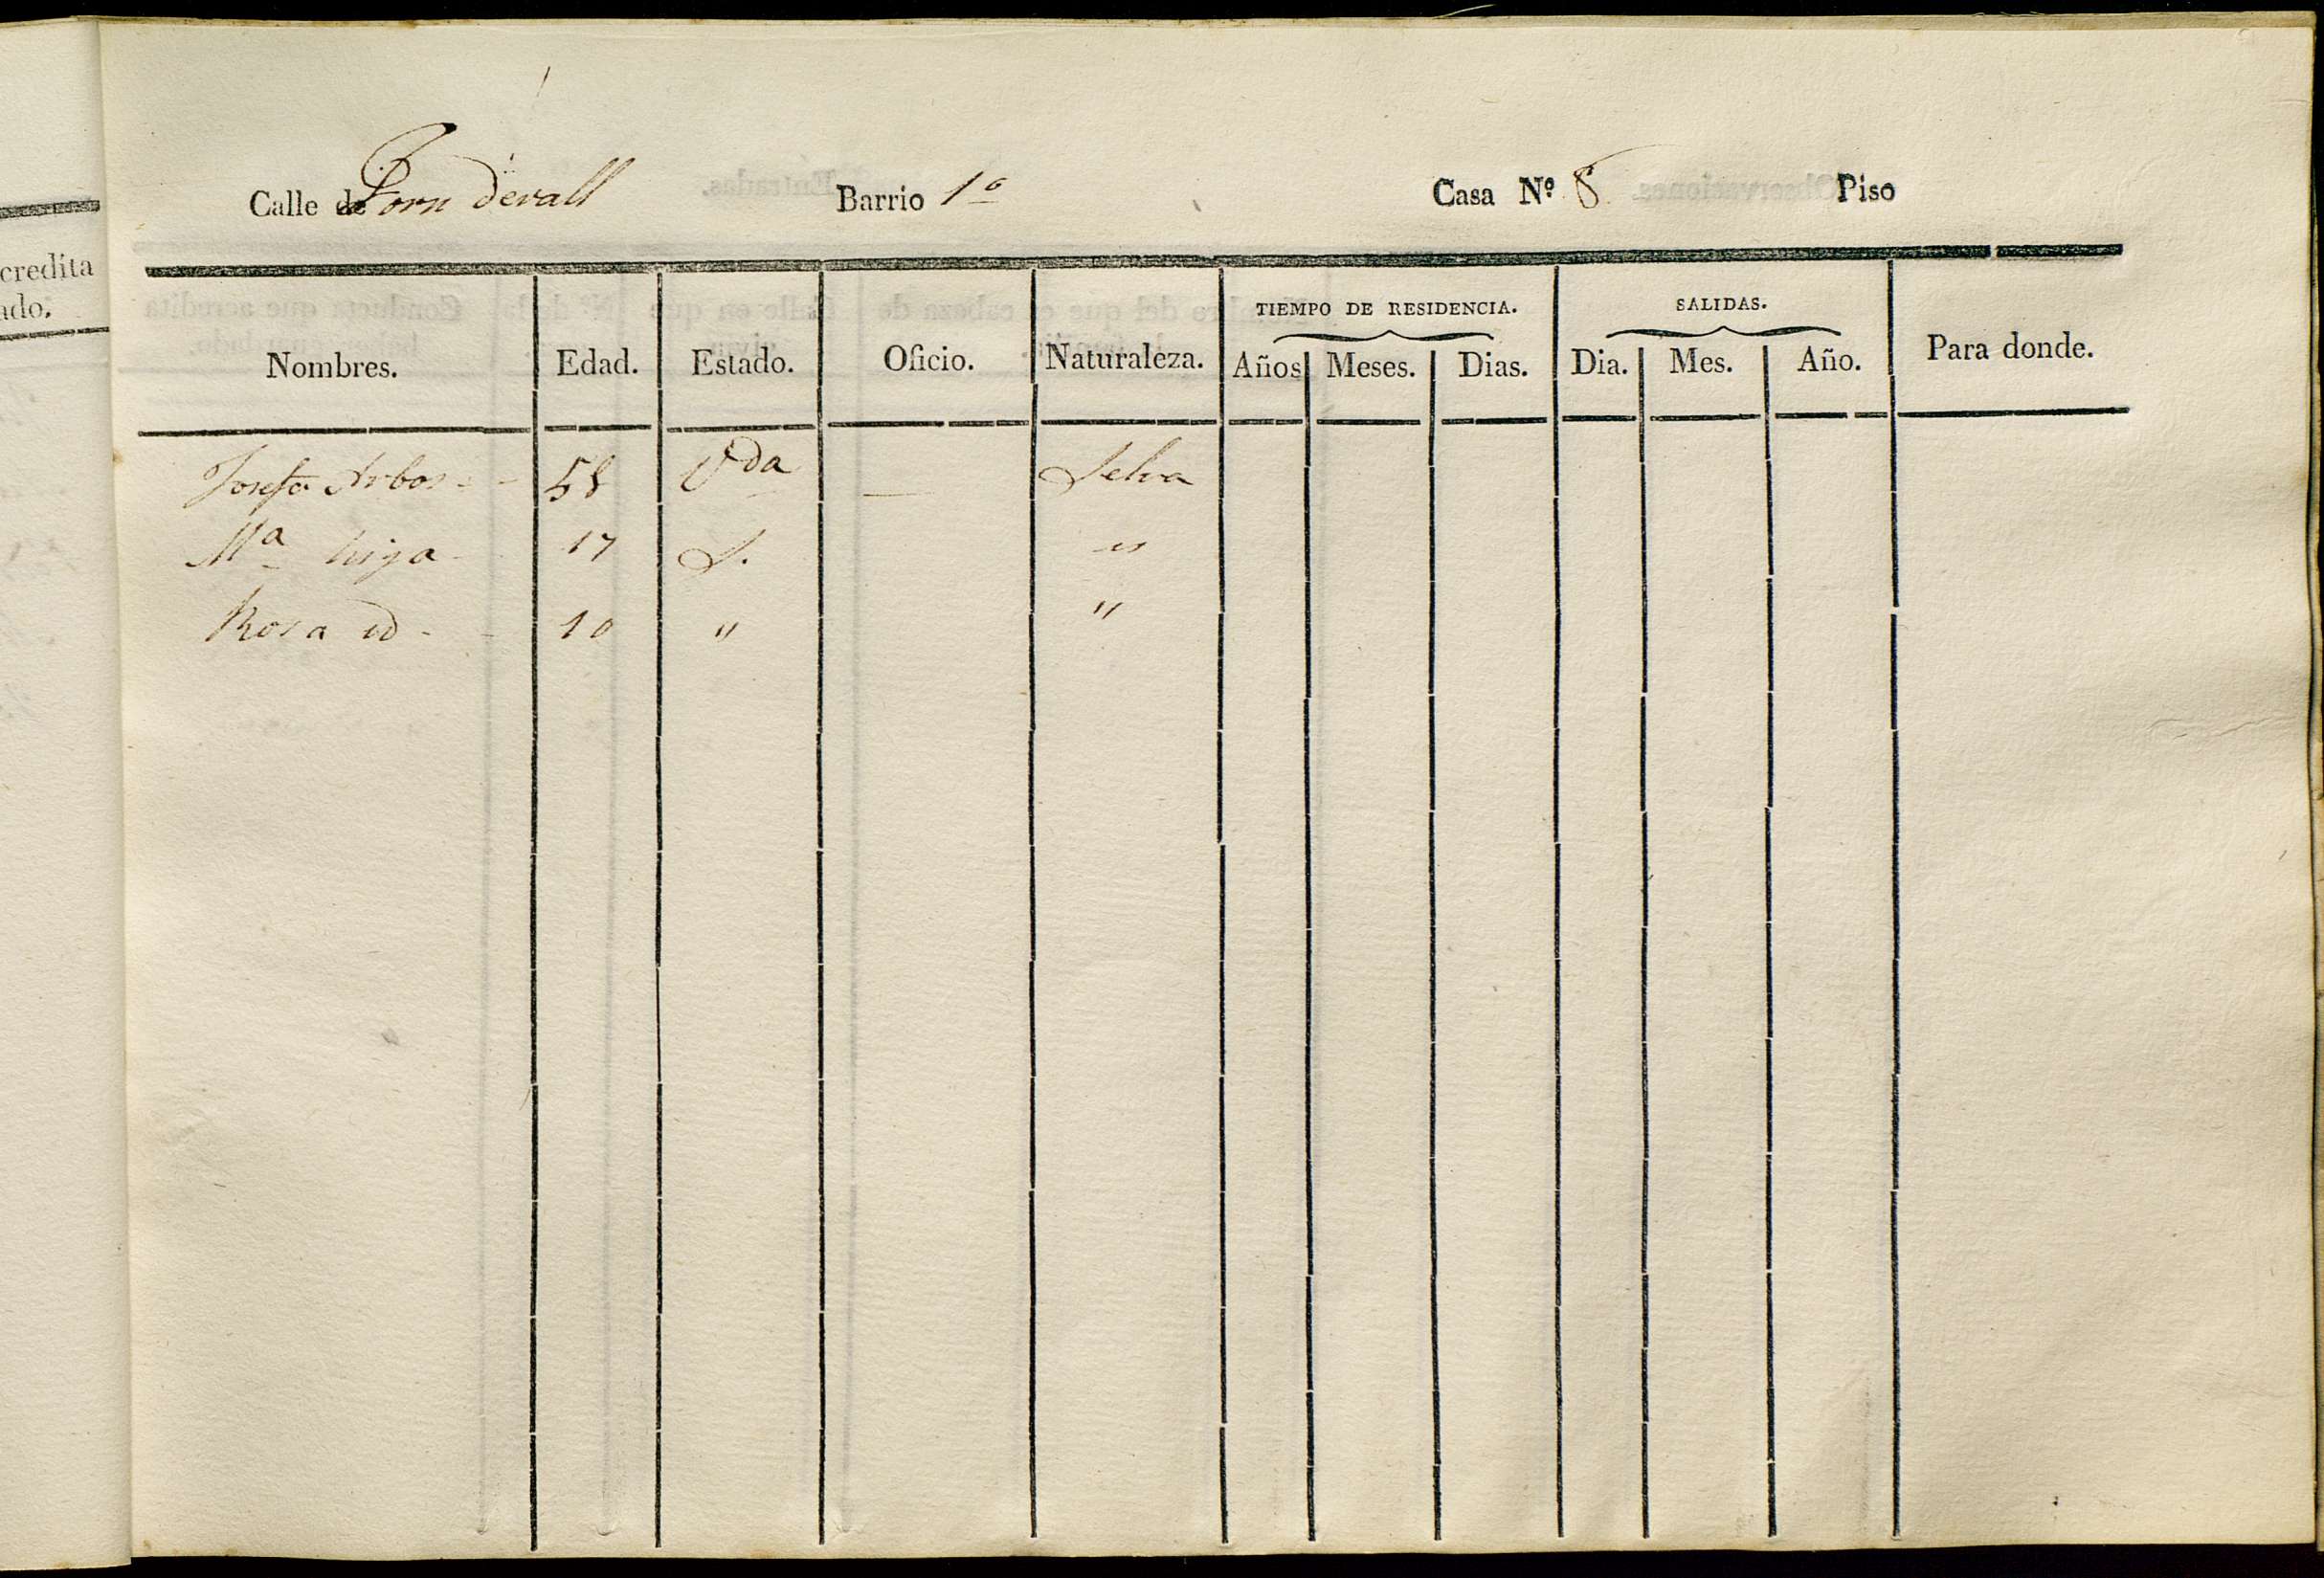 Calle de Forn devall Barrio 1º Casa Nº 8 Piso
credita
ado.
TIEMPO DE RESIDENCIA. SALIDAS.
Nombres. Edad. Estado. Oficio. Naturaleza. Años Meses. Dias. Dia. Mes. Año. Para donde.
Josefa Arbos - - 58 Vda — Selva
Ma hija - 17 S. "
Rosa id - - 10 " "